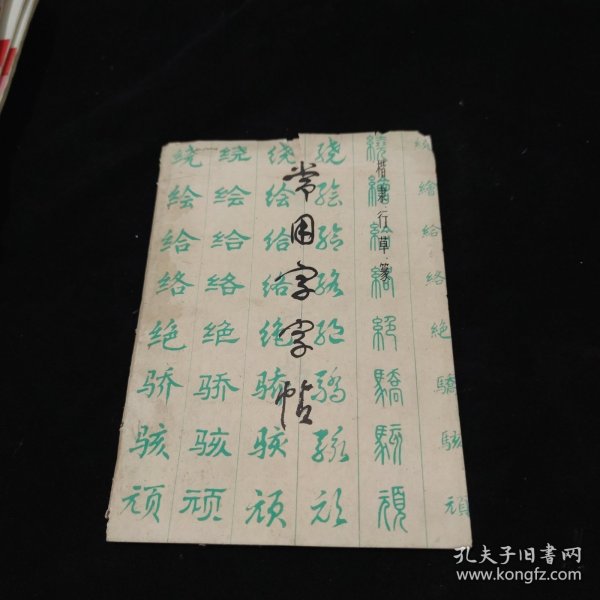 常用字字帖
楷隶行草篆
绕 绕 绕 绕 繞 繞
绘 绘 绘 绘 繪 繪
给 给 给 给 給 給
络 络 络 络 絡 絡
绝 绝 绝 绝 絕 絶
骄 骄 骄 驕 驕 驕
骇 骇 骇 骇 駭 駭
顽 顽 顽 顽 頑 頑
孔夫子旧书网
www.kongfz.com